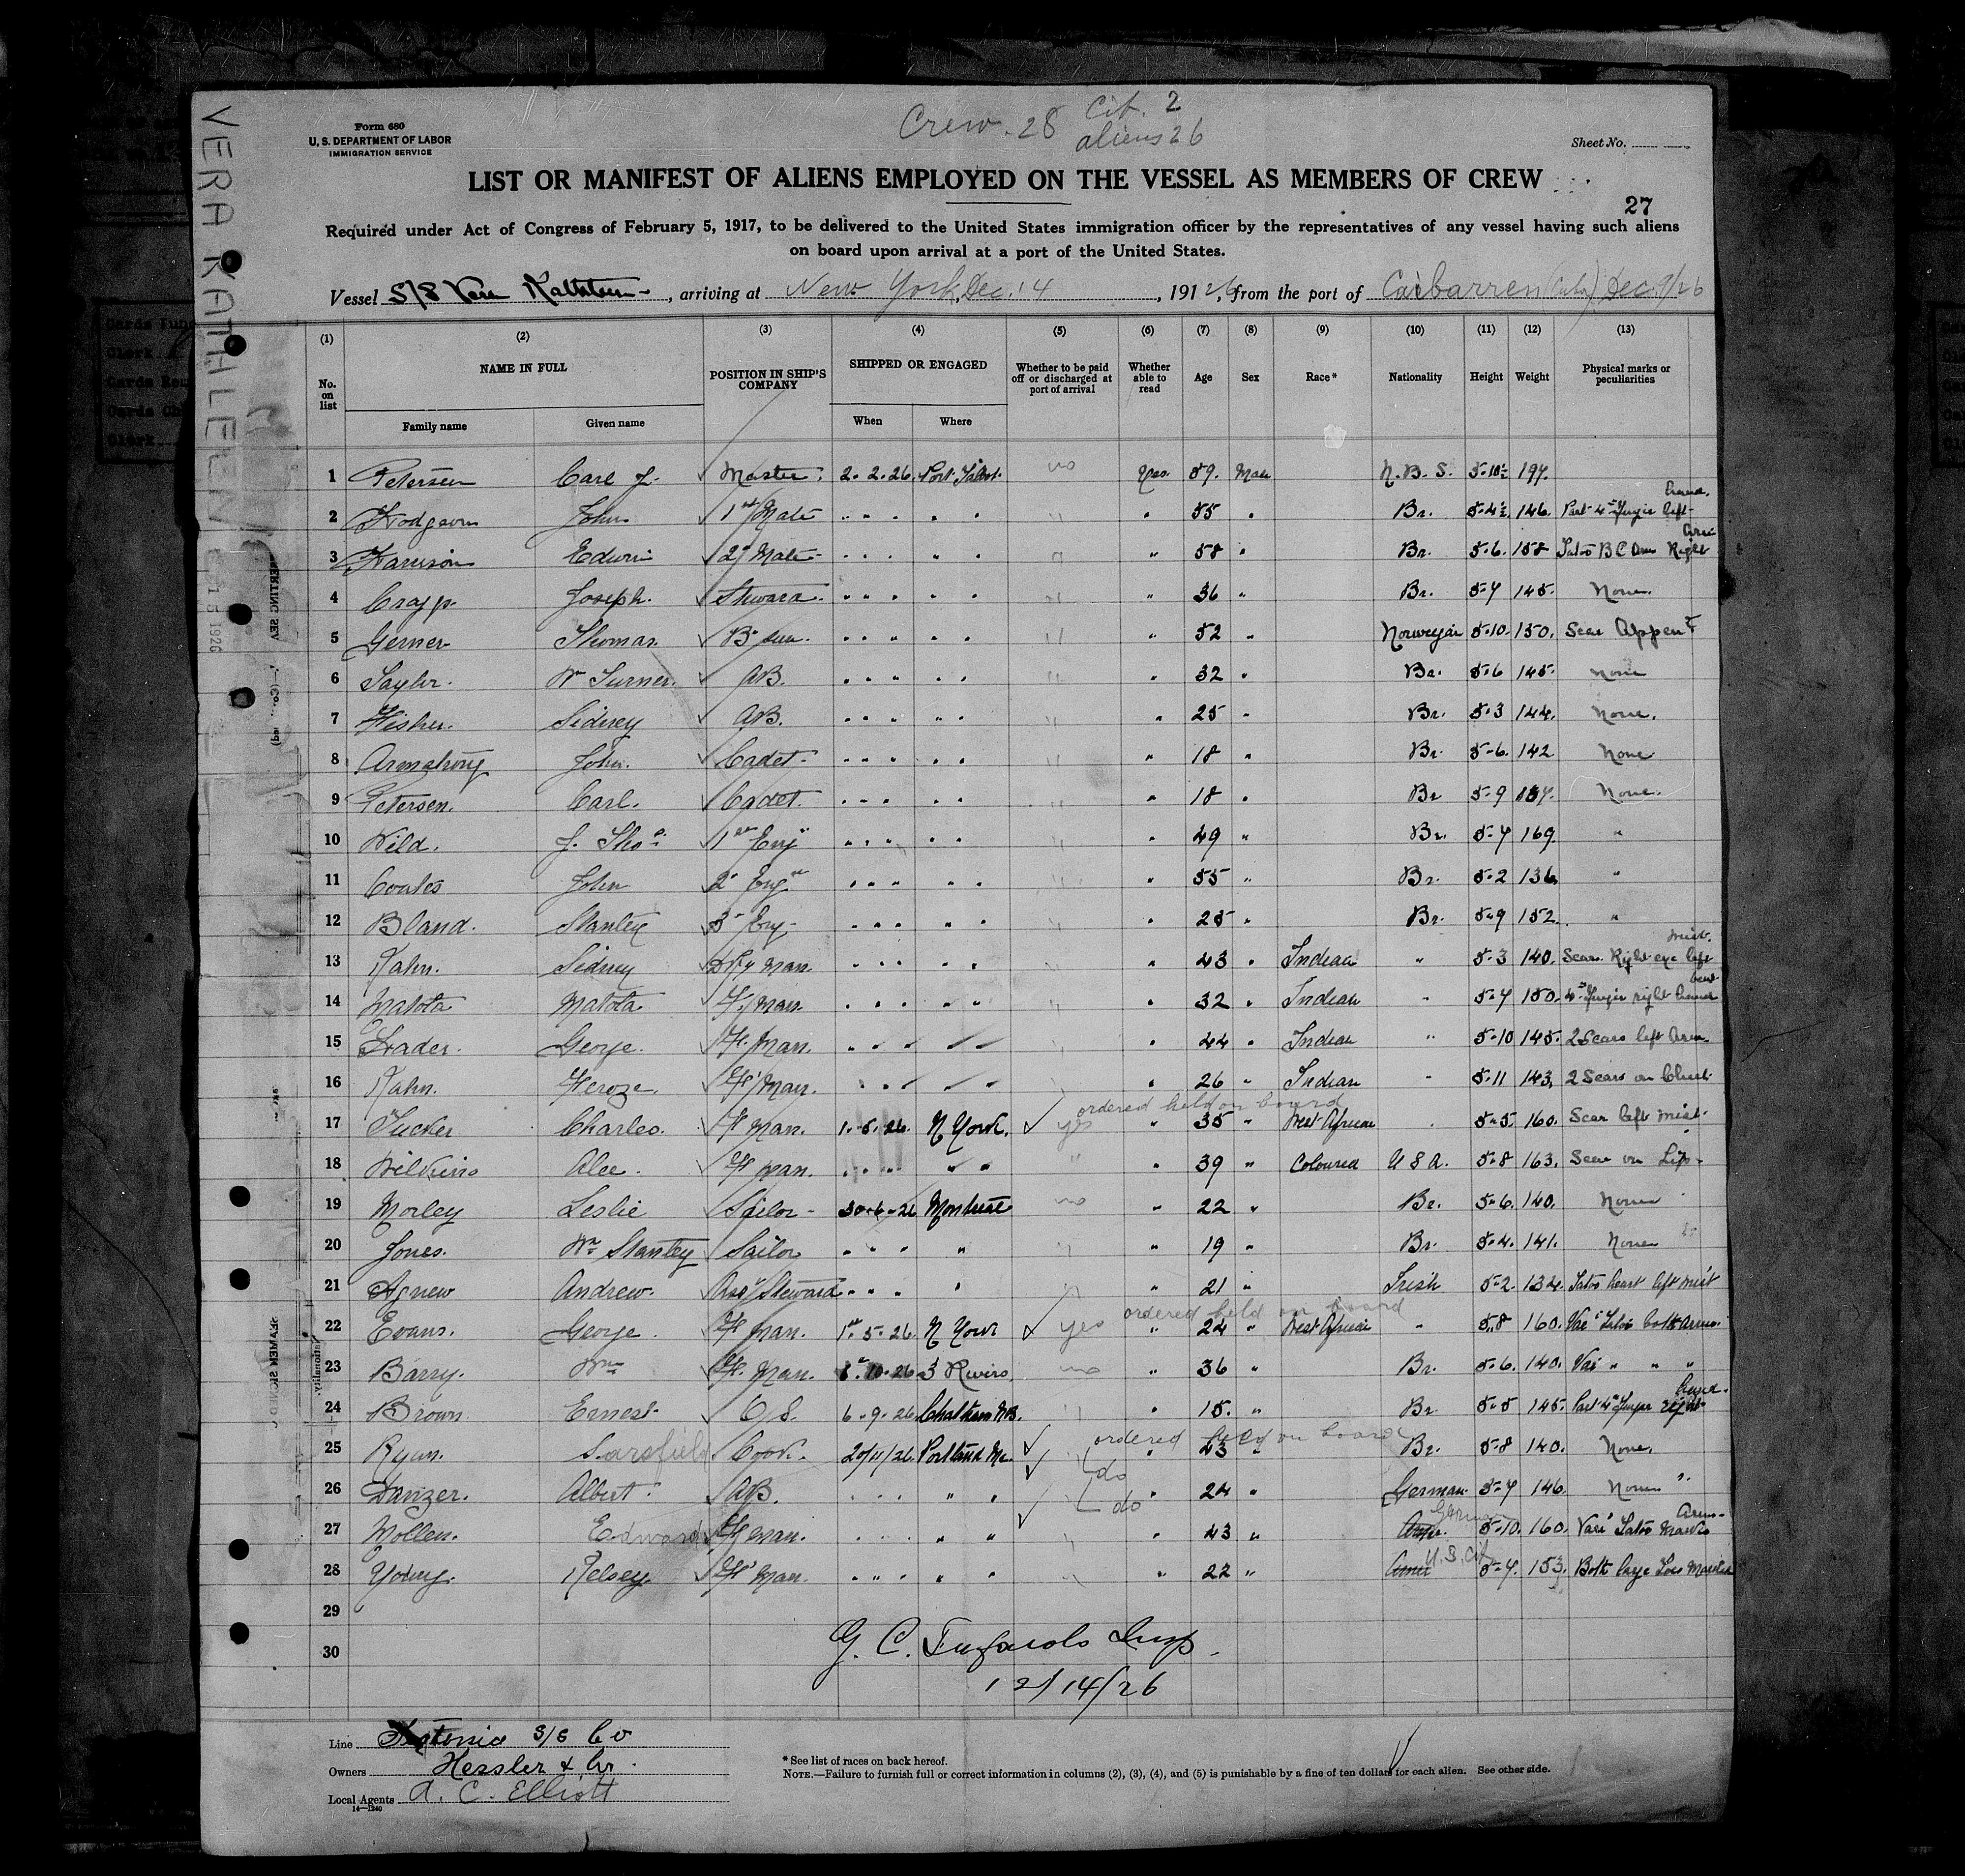 VERA KATHLEEN
Crew. 28 Cit. 2
aliens 26
Form 680
U. S. DEPARTMENT OF LABOR
IMMIGRATION SERVICE
Sheet No.
LIST OR MANIFEST OF ALIENS EMPLOYED ON THE VESSEL AS MEMBERS OF CREW
27
Required under Act of Congress of February 5, 1917, to be delivered to the United States immigration officer by the representatives of any vessel having such aliens
on board upon arrival at a port of the United States.
Vessel S/S Vera Kathleen, arriving at New York, Dec. 14, 1926, from the port of Caibarren (Cuba) Dec 9/26
(1) (2) (3) (4) (5) (6) (7) (8) (9) (10) (11) (12) (13)
No. on list NAME IN FULL POSITION IN SHIP'S COMPANY SHIPPED OR ENGAGED Whether to be paid off or discharged at port of arrival Whether able to read Age Sex Race* Nationality Height Weight Physical marks or peculiarities
Family name Given name When Where
1 Petersen Carl J. Master. 2.2.26. Port Talbot. no Yes. 59. Male N.B.S. 5.10½ 197.
2 Hodgson John. 1st Mate " " " " " " " 55 " Br. 5.4½ 146. Part 4th Finger left hand.
3 Harrison Edwin 2d Mate " " " " " " " 58 " Br. 5.6. 158 Tatoo B C Arm Right Arm
4 Crapp. Joseph. Steward. " " " " " " " 36 " Br. 5.7 145. None.
5 Gerner Thomas. B'sun. " " " " " " " 52 " Norwegian 5.10. 150. Scar Appen
6 Taylor. Wm Turner. AB. " " " " " " " 32 " Br. 5.6 145. None
7 Fisher. Sidney AB. " " " " " " " 25 " Br. 5.3 144. None.
8 Armstrong John. Cadet " " " " " " " 18 " Br. 5.6. 142 None
9 Petersen. Carl. Cadet. " " " " " " " 18 " Br 5.9 137. None.
10 Wild. J. Thos. 1st Eng " " " " " " " 49 " Br. 5.7 169. "
11 Coates John 2d Eng " " " " " " " 55 " Br. 5.2 136. "
12 Bland. Stanley 3d Eng. " " " " " " 25 " Br. 5.9 152. "
13 Kahn. Sidney Man. " " " " " " " 43 " Indian " 5.3 140. Scars. Right eye left wrist.
14 Matota Matota F. Man. " " " " " " " 32 " Indian " 5.7 150. 4th Finger right hand bent
15 George. F. Man. " " " " " " " 44 " Indian " 5.10 145. 2 Scars left Arm.
16 Kahn. Feroze. F. Man. " " " " " " " 26 " Indian " 5.11 143. 2 Scars on Chest.
ordered held on board
17 Tucker Charles. F Man. 1.5.26. N York. yes " 35 " West African " 5.5. 160. Scar left wrist.
18 Wilkins Alec. F Man. " " " " " " " 39 " Coloured U S A. 5.8 163. Scar on Lip.
19 Morley Leslie Sailor 30.6.26 Montreal no " 22 " Br. 5.6. 140. None
20 Jones. Wm Stanley Sailor " " " " " " 19 " Br. 5.4. 141. None
21 Agnew Andrew. Asst Steward " " " " " " 21 " Irish 5.2 134. Tatoo heart left wrist
ordered held on board
22 Evans. George. F Man. 1st.5.26. N York yes " 24 " West African " 5.8 160. Var Tatoo both arms.
23 Barry. Wm F. Man. 10.26 3 Rivers. no " 36 " Br. 5.6. 140. Var " " "
24 Brown Ernest O S. 6.9.26 Chatham N.B. " " 15. " Br 5.5 145. Part 4th Finger right hand.
ordered held on board
25 Ryan. Sarsfield Cook. 20/11/26. Portland Me. " 43 " Br. 5.8 140. None.
do
26 Danzer. Albert. AB. " " " " " " 24 " German 5.7 146 None
do
27 Wollen. Edward F man. " " " " " " " 43 " Amer. German 5.10. 160. Var Tatoo Marks Arms.
28 Young. Kelsey. F Man. " " " " " " " 22 " Amer U.S. Cit. 5.7. 153. Both large Toes Marked
29
30
12/14/26
Line Antonia S/S Co
Owners Hessler & Co.
Local Agents A. C. Elliott
14—1240
* See list of races on back hereof.
NOTE.—Failure to furnish full or correct information in columns (2), (3), (4), and (5) is punishable by a fine of ten dollars for each alien. See other side.